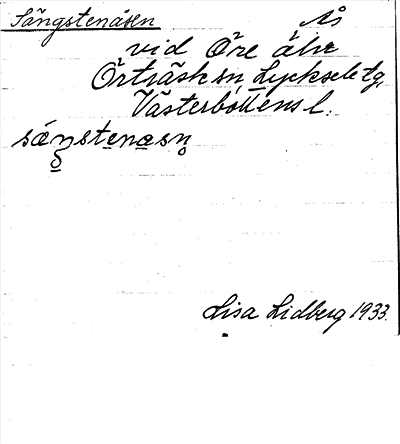 Sångstenåsen Ås
vid Öre älv
Örträsk sn, Lycksele tg,
Västerbottens l.
såŋstenasn̥
Lisa Lidberg 1933.